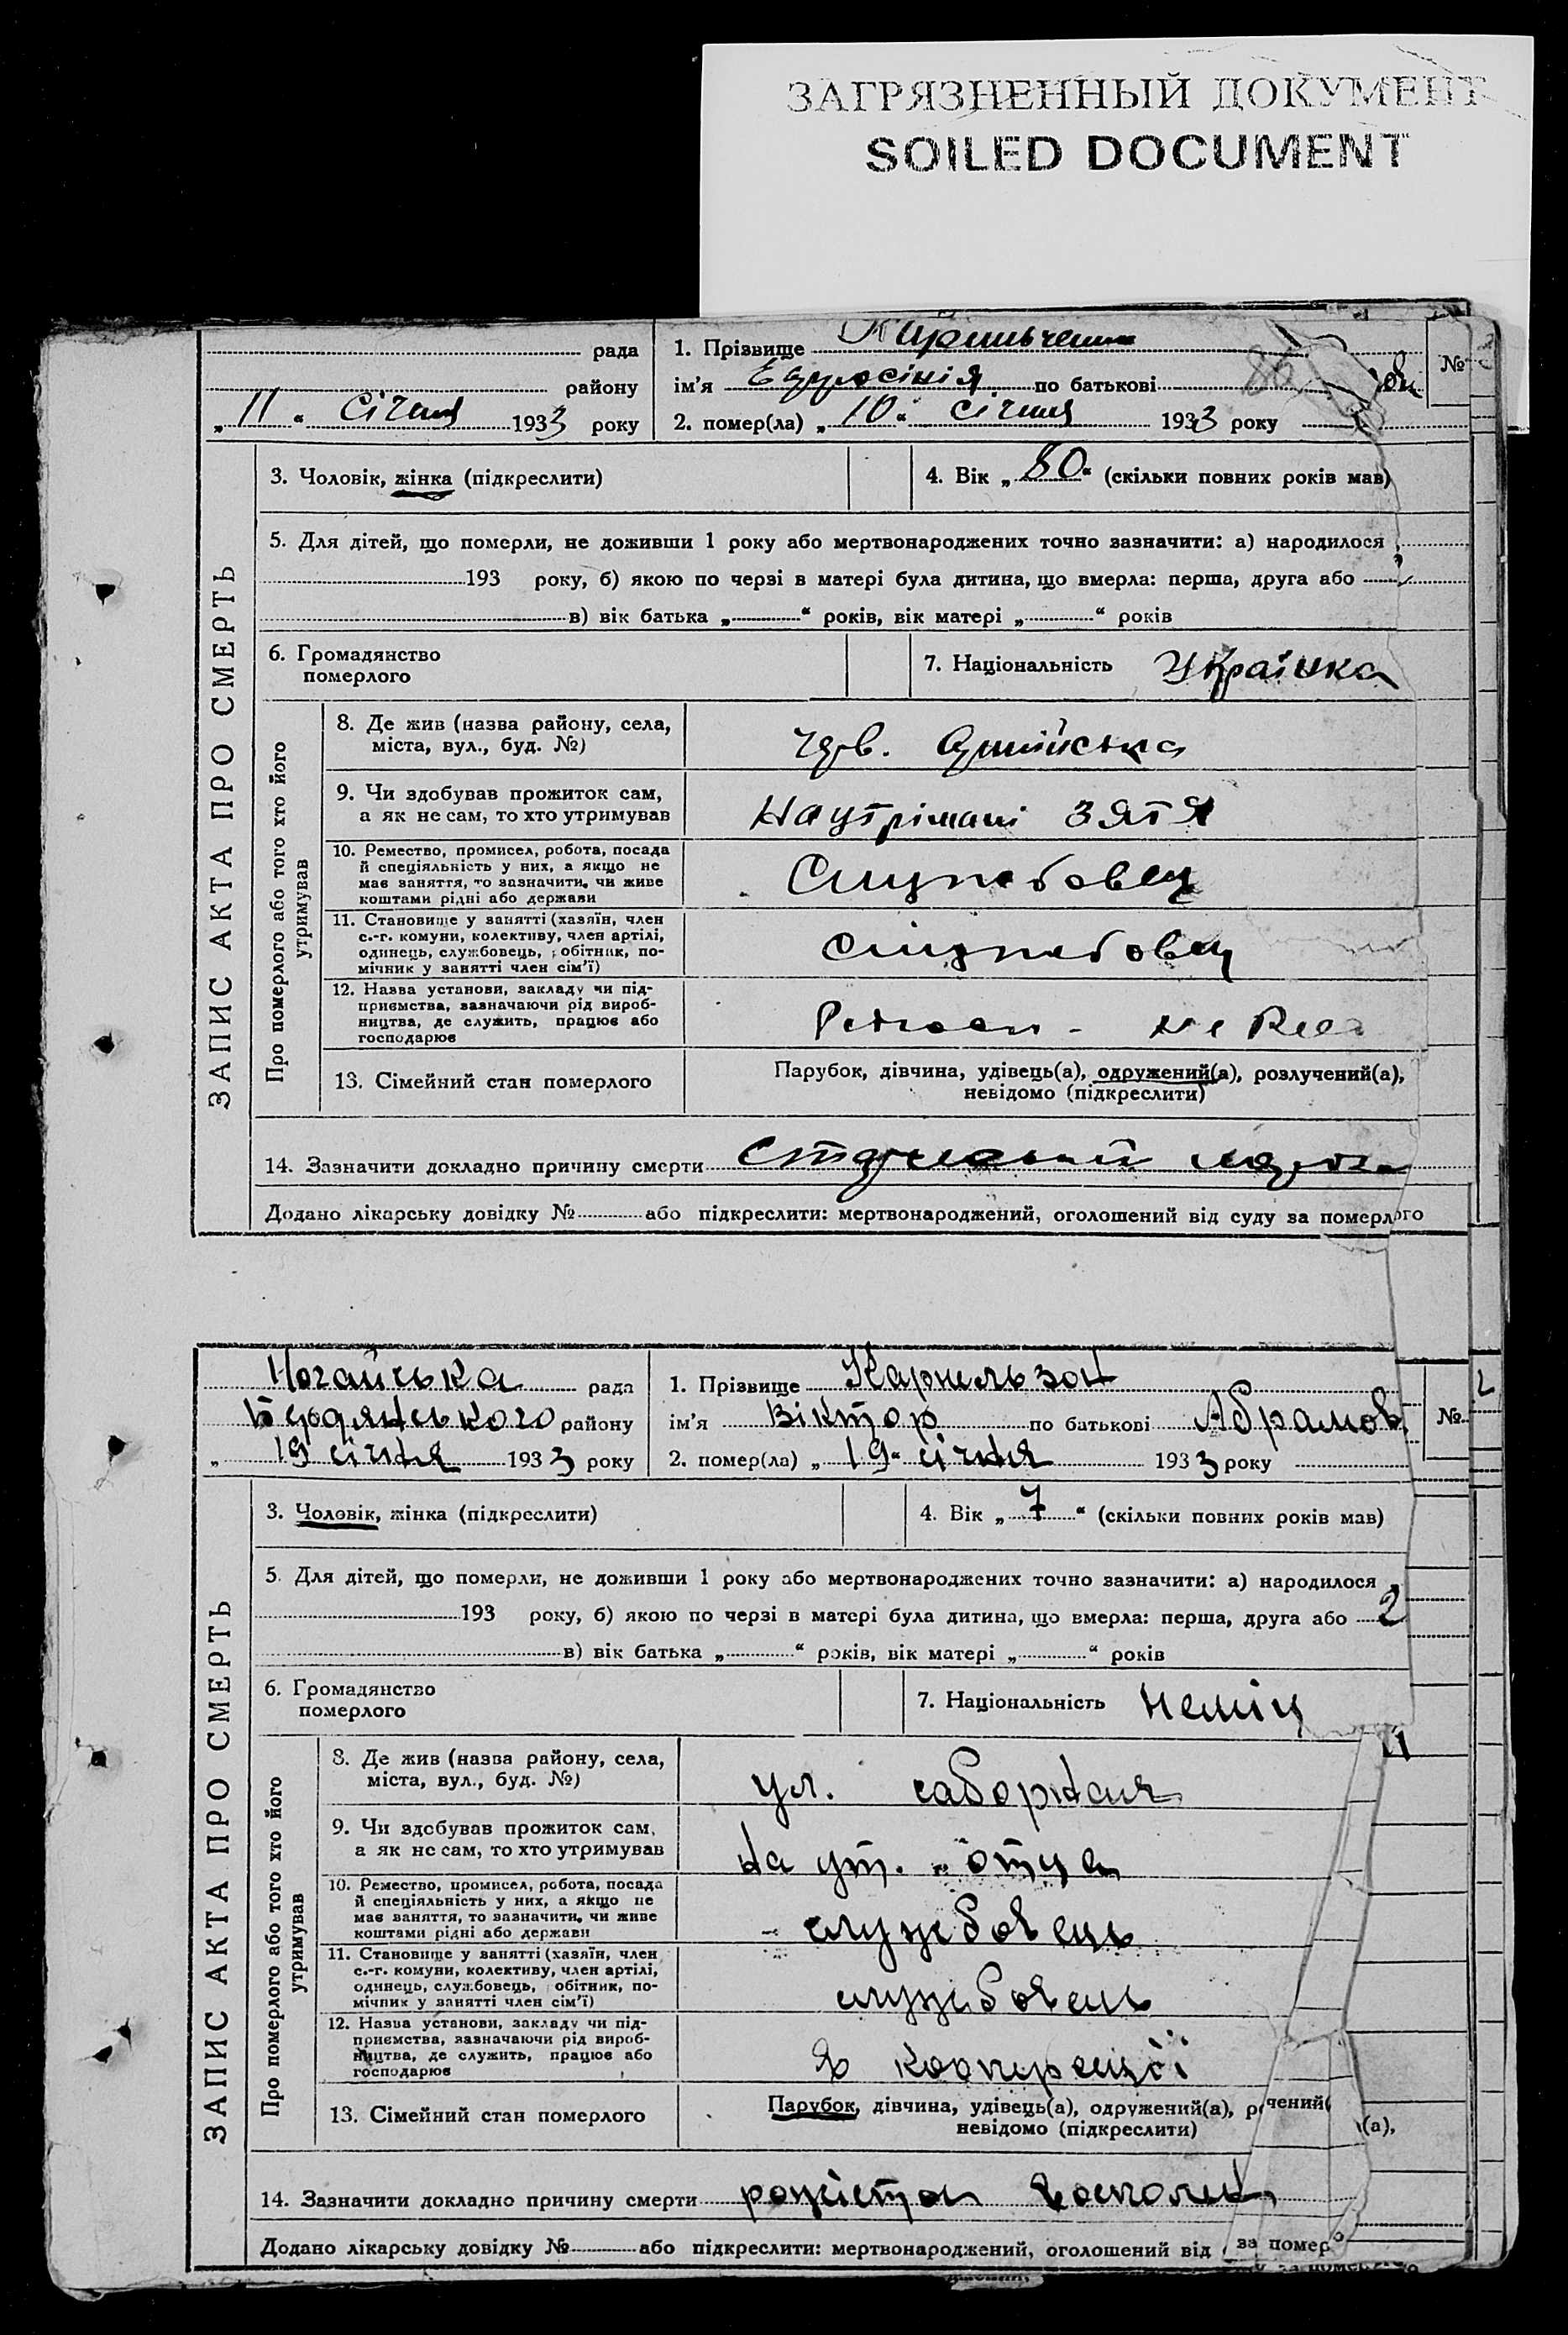 ЗАГРЯЗНЕННЫЙ ДОКУМЕНТ
SOILED DOCUMENT
рада
району
„11“ січня 1933 року
1. Прізвище
ім'я Ефросінія по батькові
2. помер(ла) „10“ січня 1933 року
№
ЗАПИС АКТА ПРО СМЕРТЬ
3. Чоловік, жінка (підкреслити)
4. Вік „80“ (скільки повних років мав)
5. Для дітей, що померли, не доживши 1 року або мертвонароджених точно зазначити: а) народилося
193 року, б) якою по черзі в матері була дитина, що вмерла: перша, друга або
в) вік батька „ “ років, вік матері „ “ років
6. Громадянство
померлого
7. Національність Українка
Про померлого або того хто його
утримував
8. Де жив (назва району, села,
міста, вул., буд. №)
9. Чи здобував прожиток сам,
а як не сам, то хто утримував
На утрімані зятя
10. Ремество, промисел, робота, посада
й спеціяльність у них, а якщо не
має заняття, то зазначити, чи живе
коштами рідні або держави
Службовец
11. Становище у занятті (хазяїн, член
с.-г. комуни, колективу, член артілі,
одинець, службовець, обітник, по-
мічник у занятті член сім'ї)
службовец
12. Назва установи, закладу чи під-
приємства, зазначаючи рід вироб-
ництва, де служить, працює або
господарює
13. Сімейний стан померлого
Парубок, дівчина, удівець(а), одружений(а), розлучений(а),
невідомо (підкреслити)
14. Зазначити докладно причину смерти
Додано лікарську довідку № або підкреслити: мертвонароджений, оголошений від суду за померлого
Ногайська рада
Бердянського району
„19 січня 1933 року
1. Прізвище Карнельзон
ім'я Віктор по батькові Абрамов
2. помер(ла) „19“ січня 1933 року
№
2
ЗАПИС АКТА ПРО СМЕРТЬ
3. Чоловік, жінка (підкреслити)
4. Вік „7“ (скільки повних років мав)
5. Для дітей, що померли, не доживши 1 року або мертвонароджених точно зазначити: а) народилося
193 року, б) якою по черзі в матері була дитина, що вмерла: перша, друга або 2
в) вік батька „ “ років, вік матері „ “ років
6. Громадянство
померлого
7. Національність Неміц
Про померлого або того хто його
утримував
8. Де жив (назва району, села,
міста, вул., буд. №)
ул. саборная
9. Чи здобував прожиток сам,
а як не сам, то хто утримував
на ут. отца
10. Ремество, промисел, робота, посада
й спеціяльність у них, а якщо не
має заняття, то зазначити, чи живе
коштами рідні або держави
службовець
11. Становище у занятті (хазяїн, член
с.-г. комуни, колективу, член артілі,
одинець, службовець, обітник, по-
мічник у занятті член сім'ї)
службовець
12. Назва установи, закладу чи під-
приємства, зазначаючи рід вироб-
ництва, де служить, працює або
господарює
В кооперації
13. Сімейний стан померлого
Парубок, дівчина, удівець(а), одружений(а), р чений(
(а),
невідомо (підкреслити)
14. Зазначити докладно причину смерти
Додано лікарську довідку № або підкреслити: мертвонароджений, оголошений від за помер